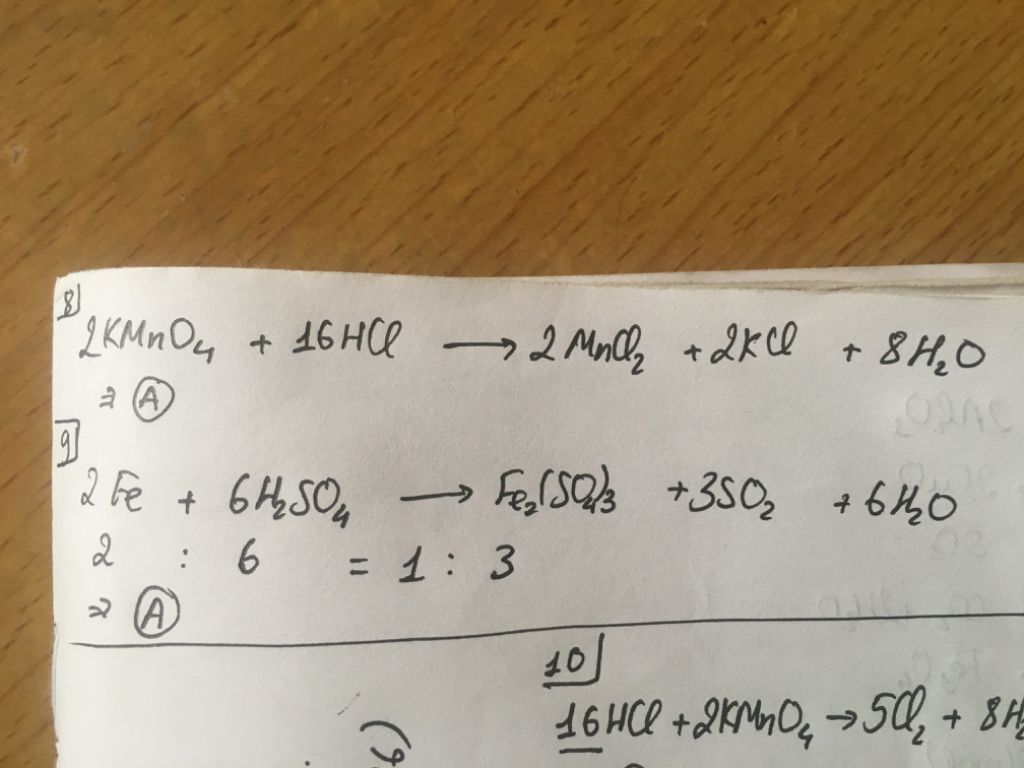 8)
2KMnO₄ + 16HCl ⟶ 2MnCl₂ + 2KCl + 8H₂O
⇒ A
9)
2Fe + 6H₂SO₄ ⟶ Fe₂(SO₄)₃ + 3SO₂ + 6H₂O
2 : 6 = 1 : 3
⇒ A
10)
16HCl + 2KMnO₄ → 5Cl₂ + 8H₂